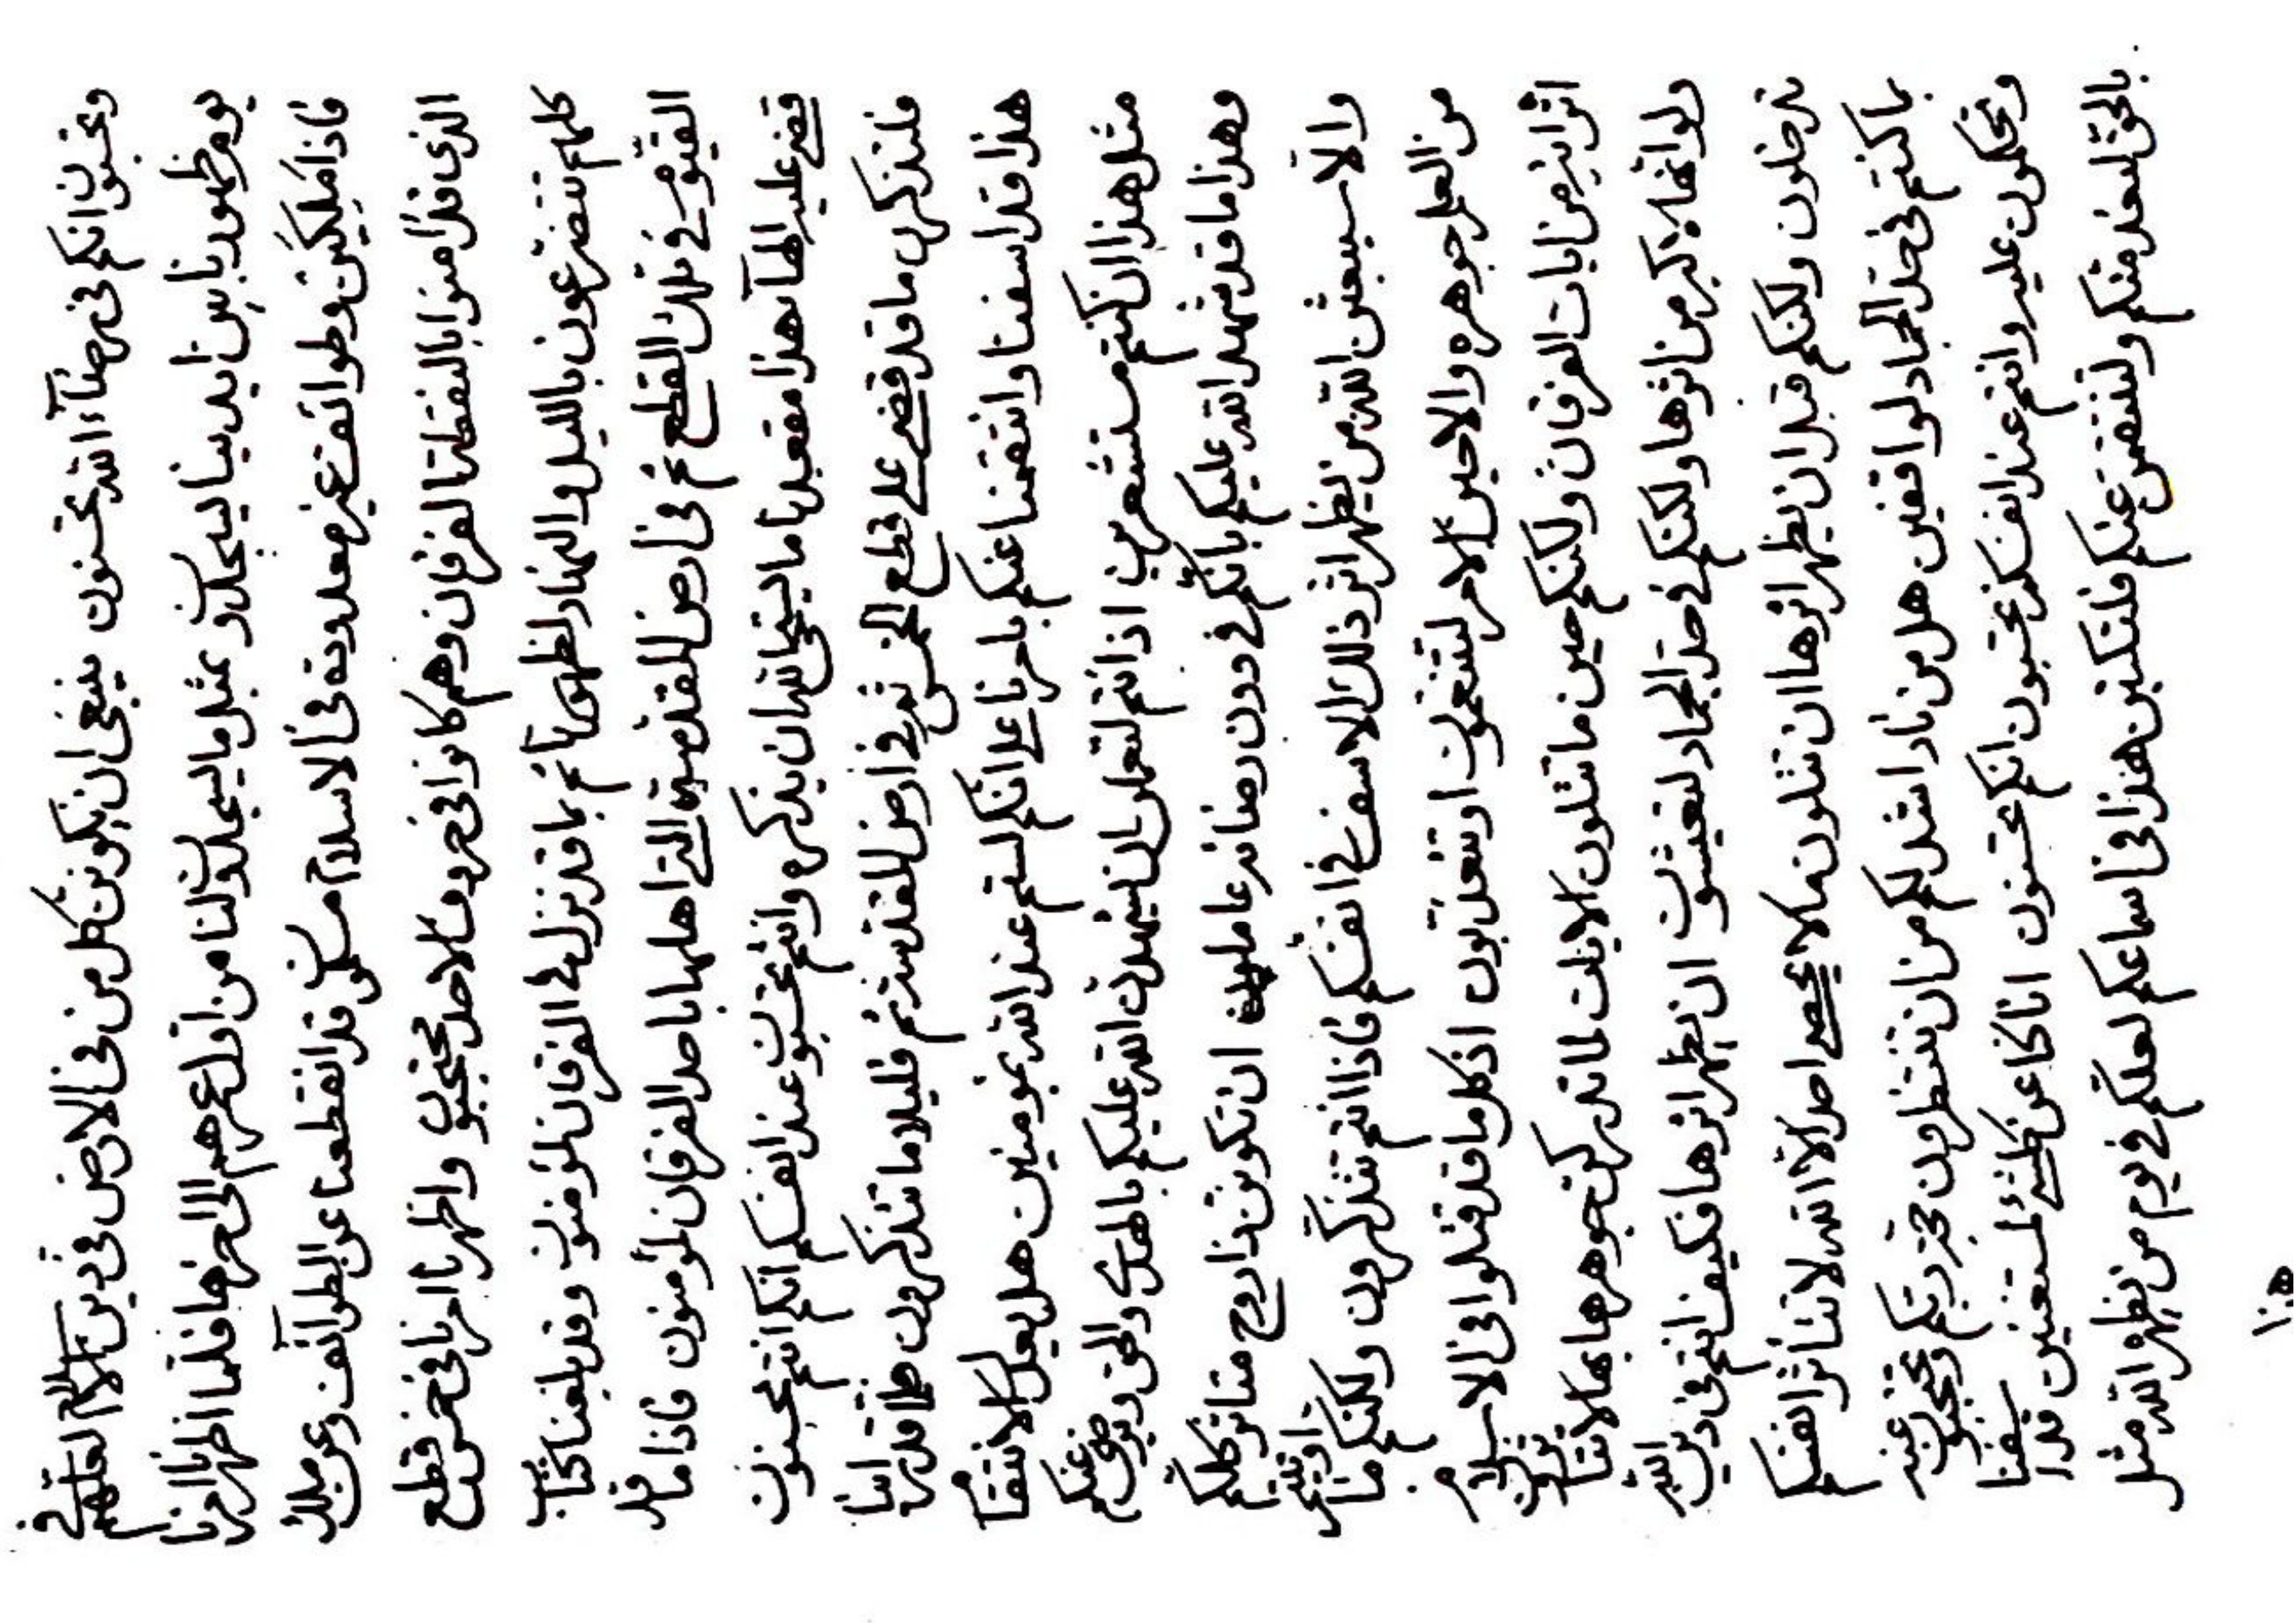 وتحبون انكم فى رضآء الله تحسنون ينبغى ان يكونن كل من فى الارض فى دين الاسلام لعلهم فى
يوم ظهورنا بين ايدينا ليسجدون بمثل ما ليسجدون لنا من اول عمرهم الى اخرها فلما اظهرنا امرنا
فاذا مليكين وطوائف غير معدودة فى الاسلام مسكون قد انقطعنا عن الطوآئف وعن ملك
الذى قد امنوا بالنقطة الفرقان وهم كانوا فى حروف الاحد محتجبون واظهرنا امرنا فى خمس قطع
كلهم تتضرعون بالليل والنهار لظهورنا ثم بما قد نزل فى الفرقان لمؤمنون وقد بلغنا كتاب
القيوم فى تلك القطع ثم فى ارض المقدسة التى اهلها باحد الفرقان لمؤمنون فاذا ما قد
قضى عليه الهآ هذا مقعد نا ما ليستحى الله ان يذكره وانتم تحسبون عند انفسكم انكم انتم محسنون
فلتذكرن ما قد قضى على قطع الخمس ثم فى ارض المقدس ثم قليلا ما تتذكرون قد اتينا
هذا قد اسفنا وانتقمنا عنكم بامرنا على انكم لستم عند الله بمؤمنين هل يعدل الانتقام
مثل هذا ان كنتم مستشعرين اذ انتم لتعملن ان يشهدن الله عليكم بالهدى والحق ويرضى عنكم
وهذا ما قد شهد الله عليكم بانكم فى دون رضائه عاملون ان تكونن ذا روح متاثر كلكم
والا سيبعثن الله من يظهر اثر ذلك الاسف فى انفسكم فاذا انتم تتذكرون ولكنكم ما اوتيتم
من العلم جوهره والا حين الامر لتتنعمون او تتعذبون اذ كلما قد قتلوا فى الاسلام
اثر اية من ايات الفرقان ولكنكم حين ما تتلون الايات لما تدركن جوهرها بها لا تتاثرون
ولو انها لاكبر من اثرها ولكنكم فى حد الجماد لتعيشون ان يظهر اثرها فكيف انتم فى دين الله
تدخلون ولكنكم قبل ان يظهر اثرها ان تتلون ما لا يحصى احد الا الله لا تتاثر انفسكم
بما كنتم فى حد الجماد لواقفين هل من نار اشد لكم من ان تنتظرون محيى ربكم وتحتجبون عنه
وتحكمون عليه وانتم عند انفسكم تحسبون انكم محسنون انا كنا عن كل شئ لمستغنين قد اسفنا
بالحق لبعد مثلكم ولننتقمن عنكم فلتكبرن هذا فى اسماعكم لعلكم فى يوم من يظهره الله مثل
هذا